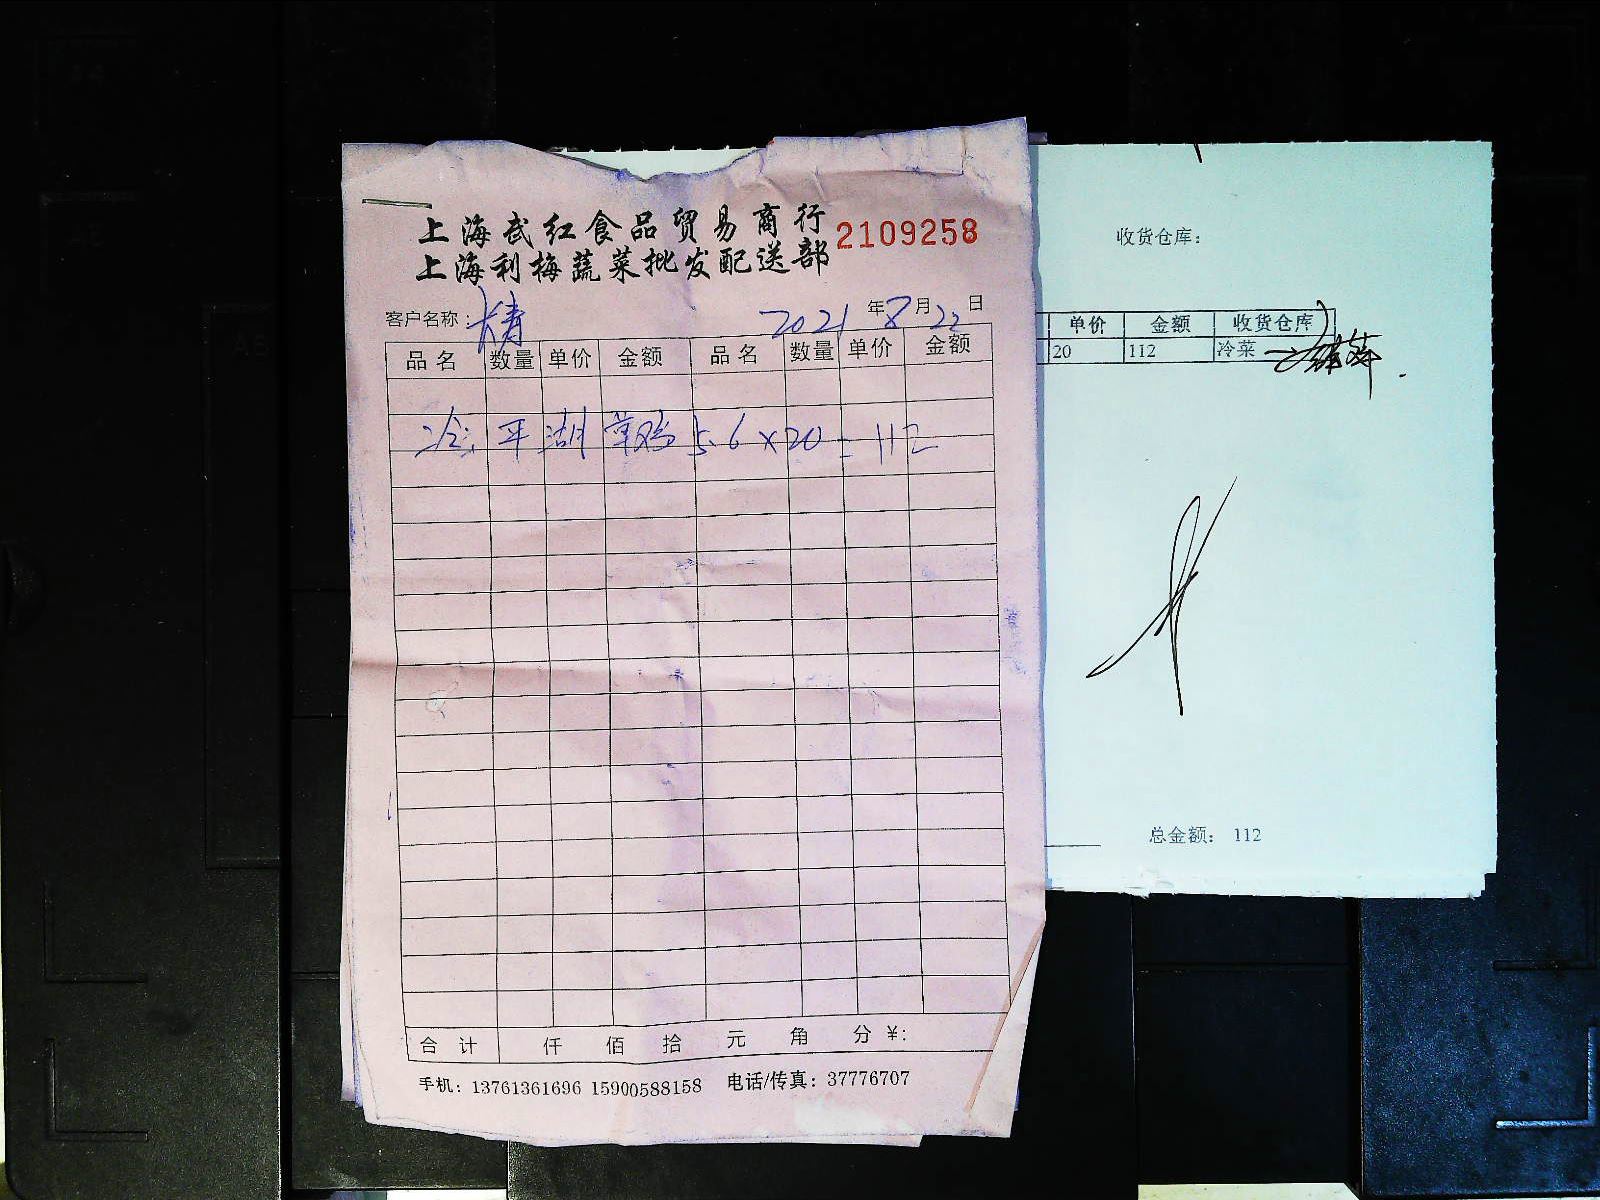 上海武红食品贸易商行
上海利梅蔬菜批发配送部
2109258
客户名称： 2021年8月22日
品名 数量 单价 金额 品名 数量 单价 金额
冷：平湖草鸡 5.6×20=112
合计 仟 佰 拾 元 角 分 ¥：
手机：13761361696 15900588158 电话/传真：37776707
收货仓库：
单价 金额 收货仓库
20 112 冷菜
总金额： 112